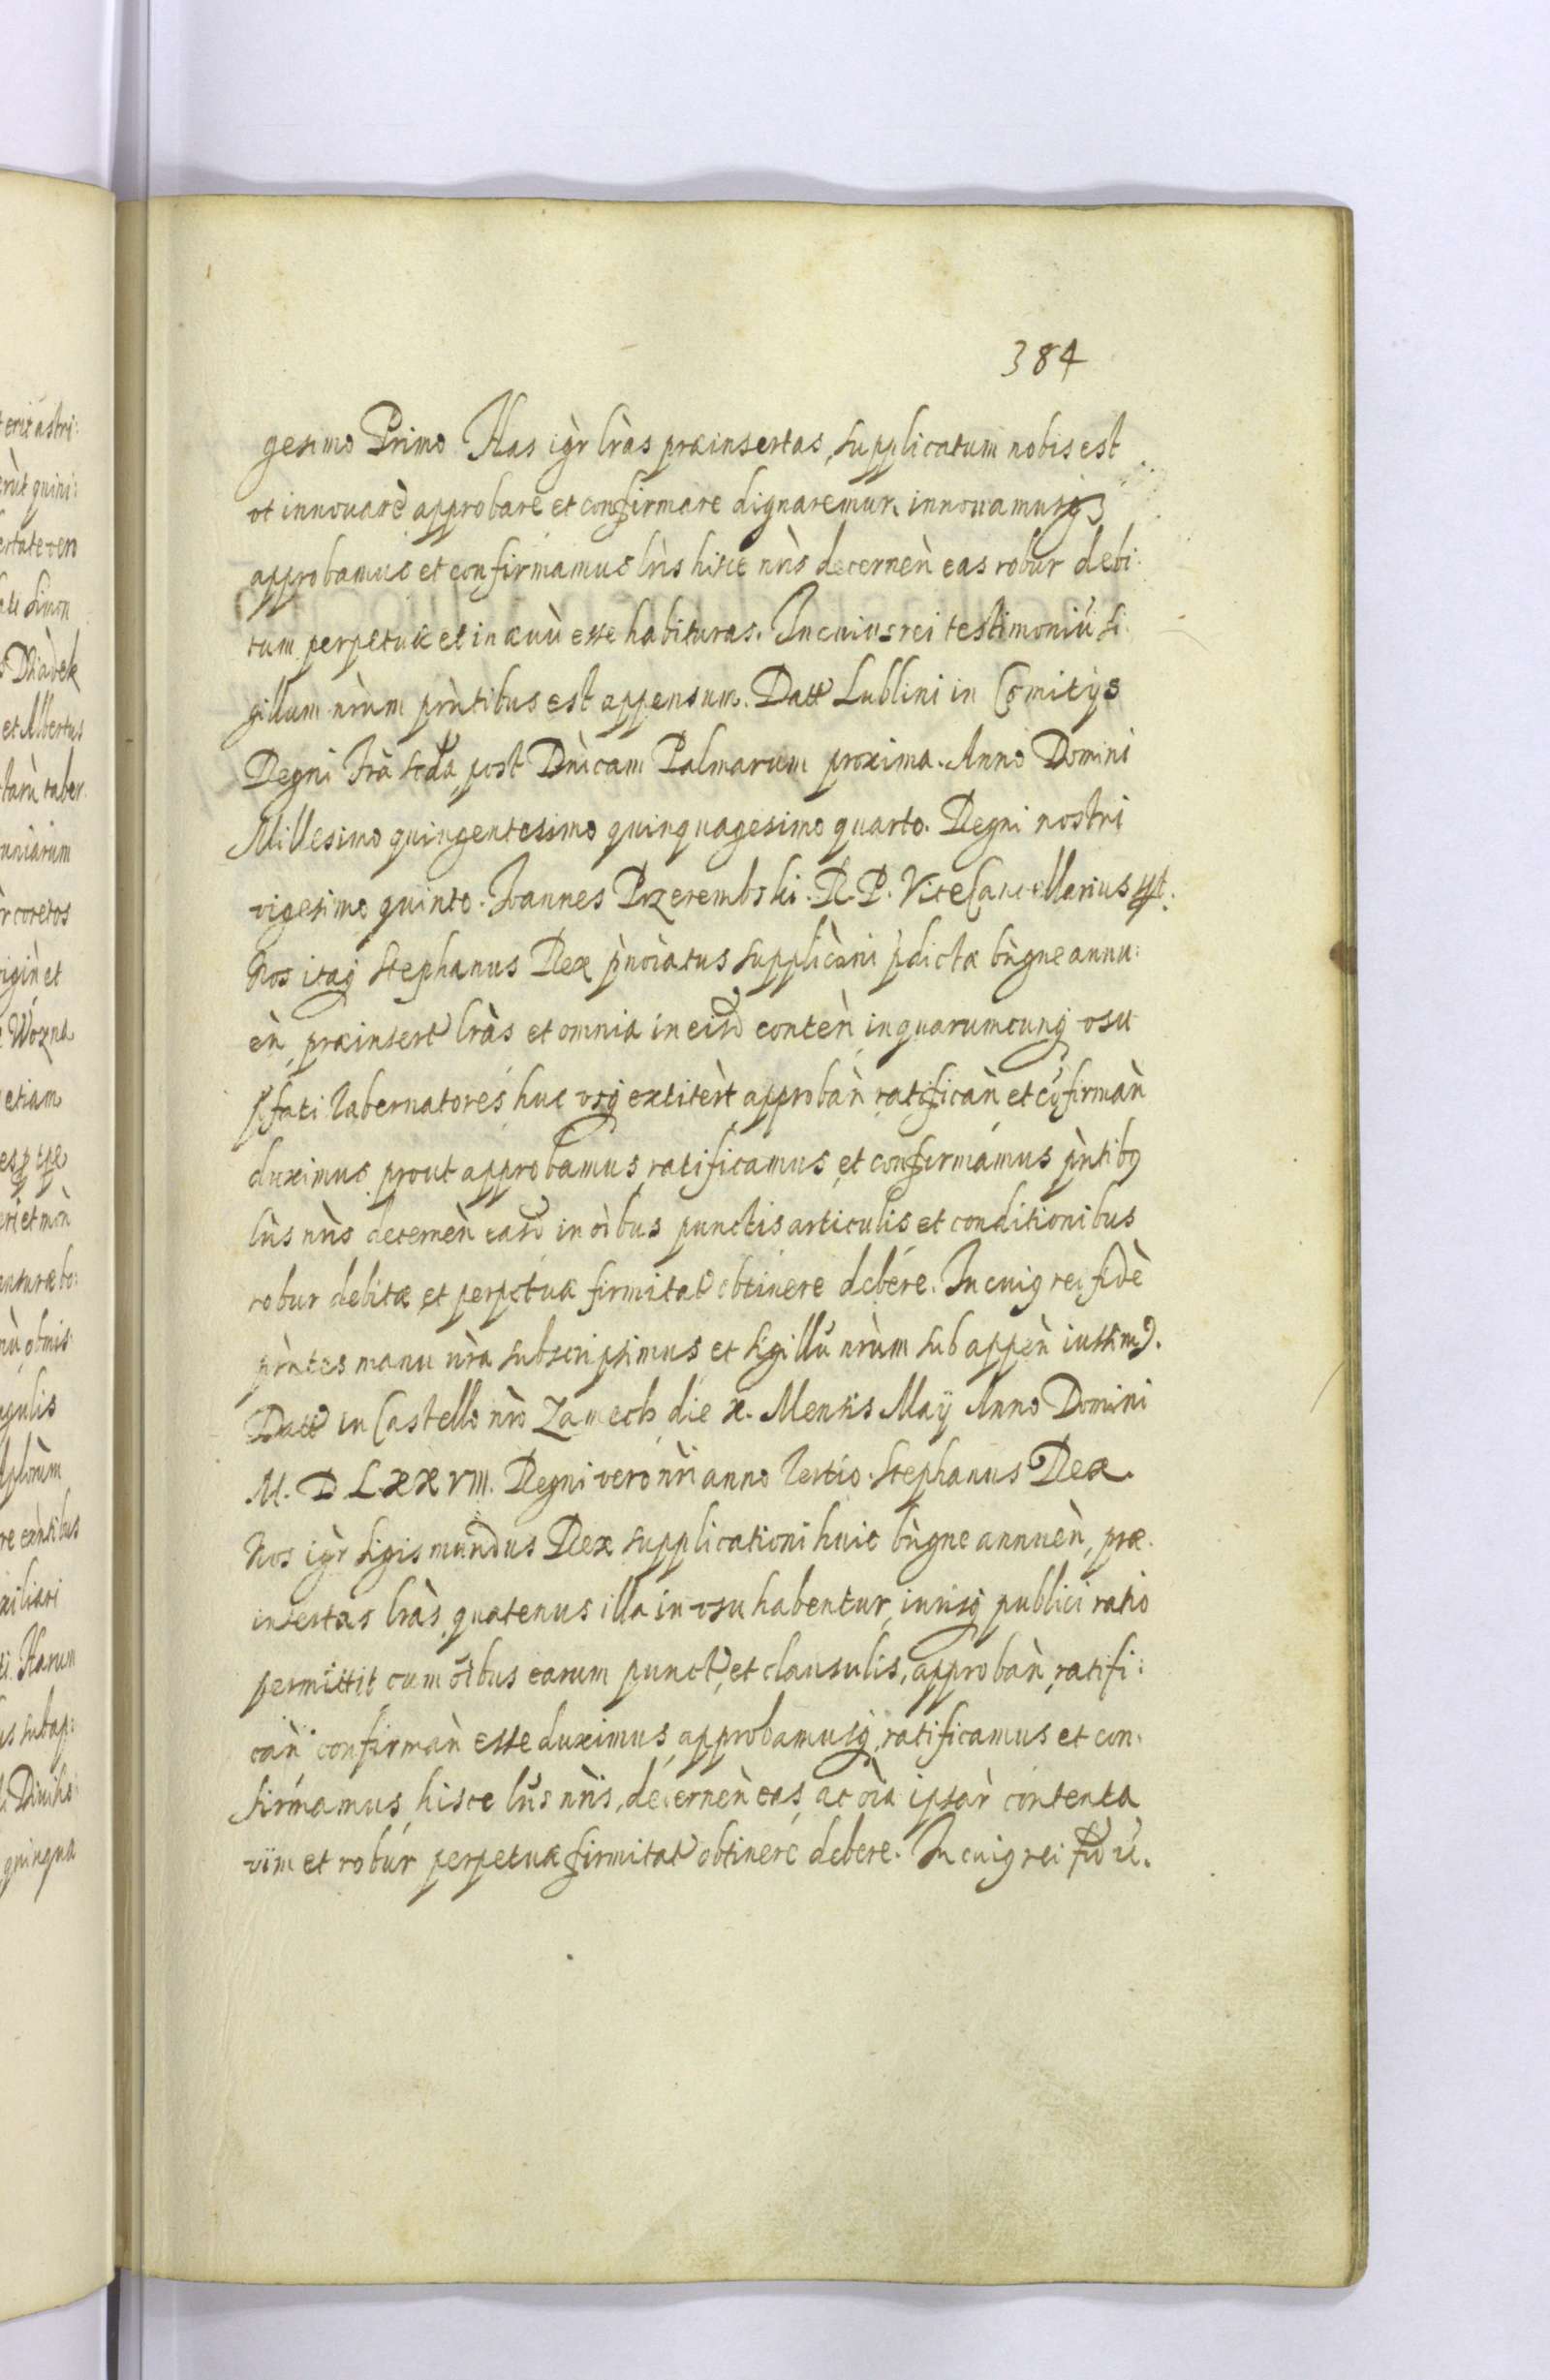 384
gesimo Primo Has igr̀ lràs præinsertas, supplicatum nobis est
vt innouarè approbare et confirmare dignaremur, innouamusq₃
approbamus et confirmamus lr̀is hisce nr̀is decernèn eas robur debi:
tum perpetuæ et in æuù esse habituras. In cuius rei testimoniu si:
gillum nr̀um pr̀ntibus est appensum. Datt Lublini in Comitÿs
Regni fr̀a scda post Dnìcam Palmarum proxima. Anno Domini
Millesimo quingentesimo quinquagesimo quarto. Regni nostri
vigesimo quinto. Joannes Przerembski. R. P. ViceCancellarius sst.
Nos itaq Stephanus Rex pǹoiatus supplicàni pdictæ bǹgne annu:
èn præinsert lràs et omnia in eisd contèn in quarumcunq vsu
pfati Tabernatores huc vsq extitèrt approbàn ratificàn et cŏfirmàn
duximus prout approbamus ratificamus et confirmamus pr̀ntib9
lr̀is nr̀is decernèn easd in oìbus punctis articulis et conditionibus
robur debitæ et perpetuæ firmitat obtinere debére. In cuig rei fidè
pr̀ntes manu nr̀a subscripsimus et sigillu nr̀um sub appèn iussim9.
Datt in Castello nr̀o Zamech die x. Mensis Maÿ Anno Domini
M. D L.XX VIII. Regni vero nr̀i anno Tertio. Stephanus Rex.
Nos igr̀ Sigismundus Rex supplicationi huic bǹgne annuèn, præ.
insertas lràs, quatenus illa in vsu habentur, iurisq publici ratio
permittit cum oìbus earum punct, et clausulis, approbàn, ratifi:
càn confirmàn esse duximus approbamusq, ratificamus et con.
firmamus, hisce lr̀is nr̀is, decernèn eas, ac oìa ipsàr contenta
vim et robúr perpetuæ firmitat obtineré debere. In cuig rei